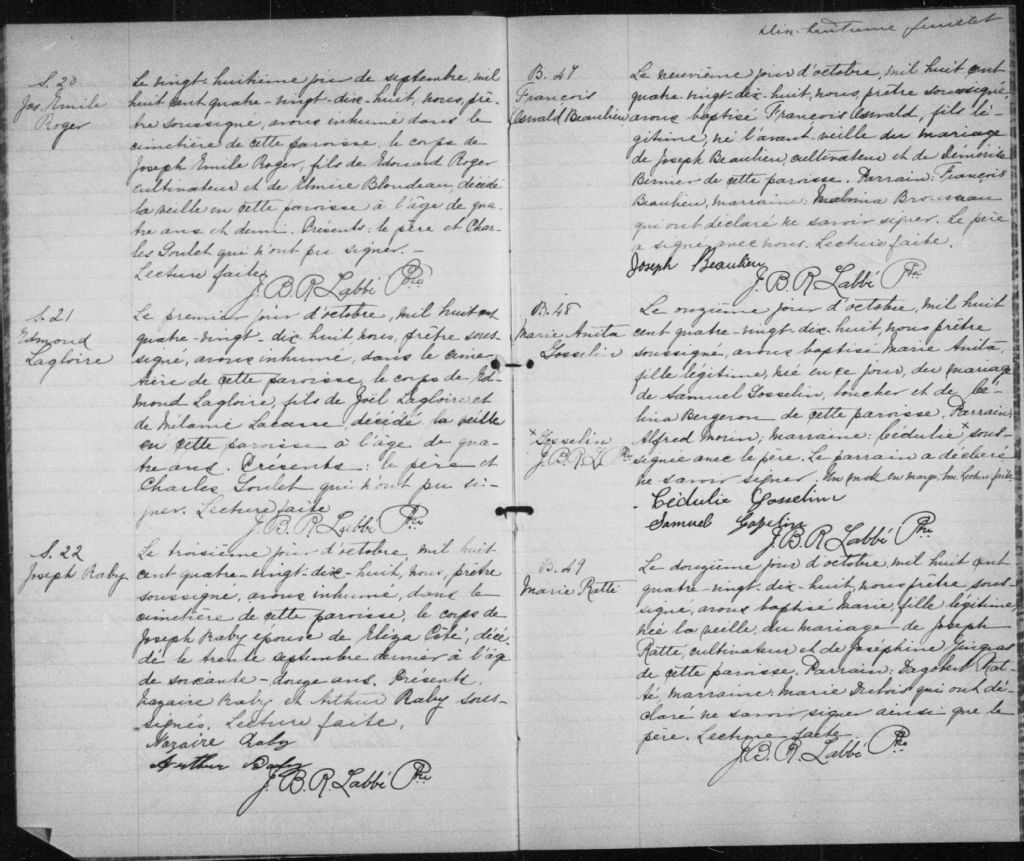 S. 20
Jos. Emile
Roger
Le vingt-huitième jour de septembre, mil
huit cent quatre-vingt-dix-huit, nous, prê-
tre soussigné, avons inhumé dans le
cimetière de cette paroisse, le corps de
Joseph Emile Roger, fils de Edouard Roger
cultivateur et de Elmire Blondeau, décédé
la veille en cette paroisse à l'âge de qua-
tre ans et demi. Présents: le père et Char-
les Goulet qui n'ont pu signer. -
Lecture faite,
J. B. R. Labbé Ptre
S. 21
Edmond
Lagloire
Le premier jour d'octobre, mil huit cent
quatre-vingt-dix huit, nous, prêtre sous-
signé, avons inhumé, dans le cime-
tière de cette paroisse, le corps de Ed-
mond Lagloire, fils de Joël Lagloire et
de Mélanie Lacasse, décédé la veille
en cette paroisse à l'âge de qua-
tre ans. Présents: le père et
Charles Goulet qui n'ont pu si-
gner. Lecture faite
J. B. R. Labbé Ptre
S. 22
Joseph Raby
Le troisième jour d'octobre, mil huit
cent quatre-vingt-dix-huit, nous, prêtre
soussigné, avons inhumé, dans le
cimetière de cette paroisse, le corps de
Joseph Raby épouse de Eliza Côté, décé-
dé le trente septembre dernier à l'âge
de soixante-douze ans. Présents,
Nazaire Raby et Arthur Raby sous-
signés. Lecture faite,
Nazaire Raby
Arthur Raby
J. B. R. Labbé Ptre
Dix-huitième feuillet
B. 47
François
Oswald Beaulieu
Le neuvième jour d'octobre, mil huit cent
quatre-vingt-dix-huit, nous, prêtre soussigné
avons baptisé François Oswald, fils lé-
gitime, né l'avant veille du mariage
de Joseph Beaulieu, cultivateur et de Démérise
Bernier de cette paroisse. Parrain: François
Beaulieu, marraine: Brousseau
qui ont déclaré ne savoir signer. Le père
a signé avec nous. Lecture faite.
Joseph Beaulieu
J. B. R. Labbé Ptre
B. 48
Marie Anita
Gosselin
Le onzième jour d'octobre, mil huit
cent quatre-vingt-dix-huit, nous prêtre
soussigné, avons baptisé Marie Anita,
fille légitime, née en ce jour, du mariage
de Samuel Gosselin, boucher et de Cé-
lina Bergeron de cette paroisse. Parrain:
Alfred Morin; Marraine: Cédulie x sous-
signée avec le père. Le parrain a déclaré
ne savoir signer. Un mot en marge bon. Lecture faite,
x Gosselin
J. B. R. L. Ptre
Cédulie Gosselin
Samuel Gosselin
J. B. R. Labbé Ptre
B. 49
Marie Ratté
Le douzième jour d'octobre, mil huit cent
quatre-vingt-dix-huit, nous prêtre sous-
signé, avons baptisé Marie, fille légitime,
née la veille, du mariage de Joseph
Ratté, cultivateur et de Joséphine Gingras
de cette paroisse. Parrain: Dagobert Rat-
té, Marraine: Marie Dubois qui ont dé-
claré ne savoir signer ainsi que le
père. Lecture faite
J. B. R. Labbé Ptre